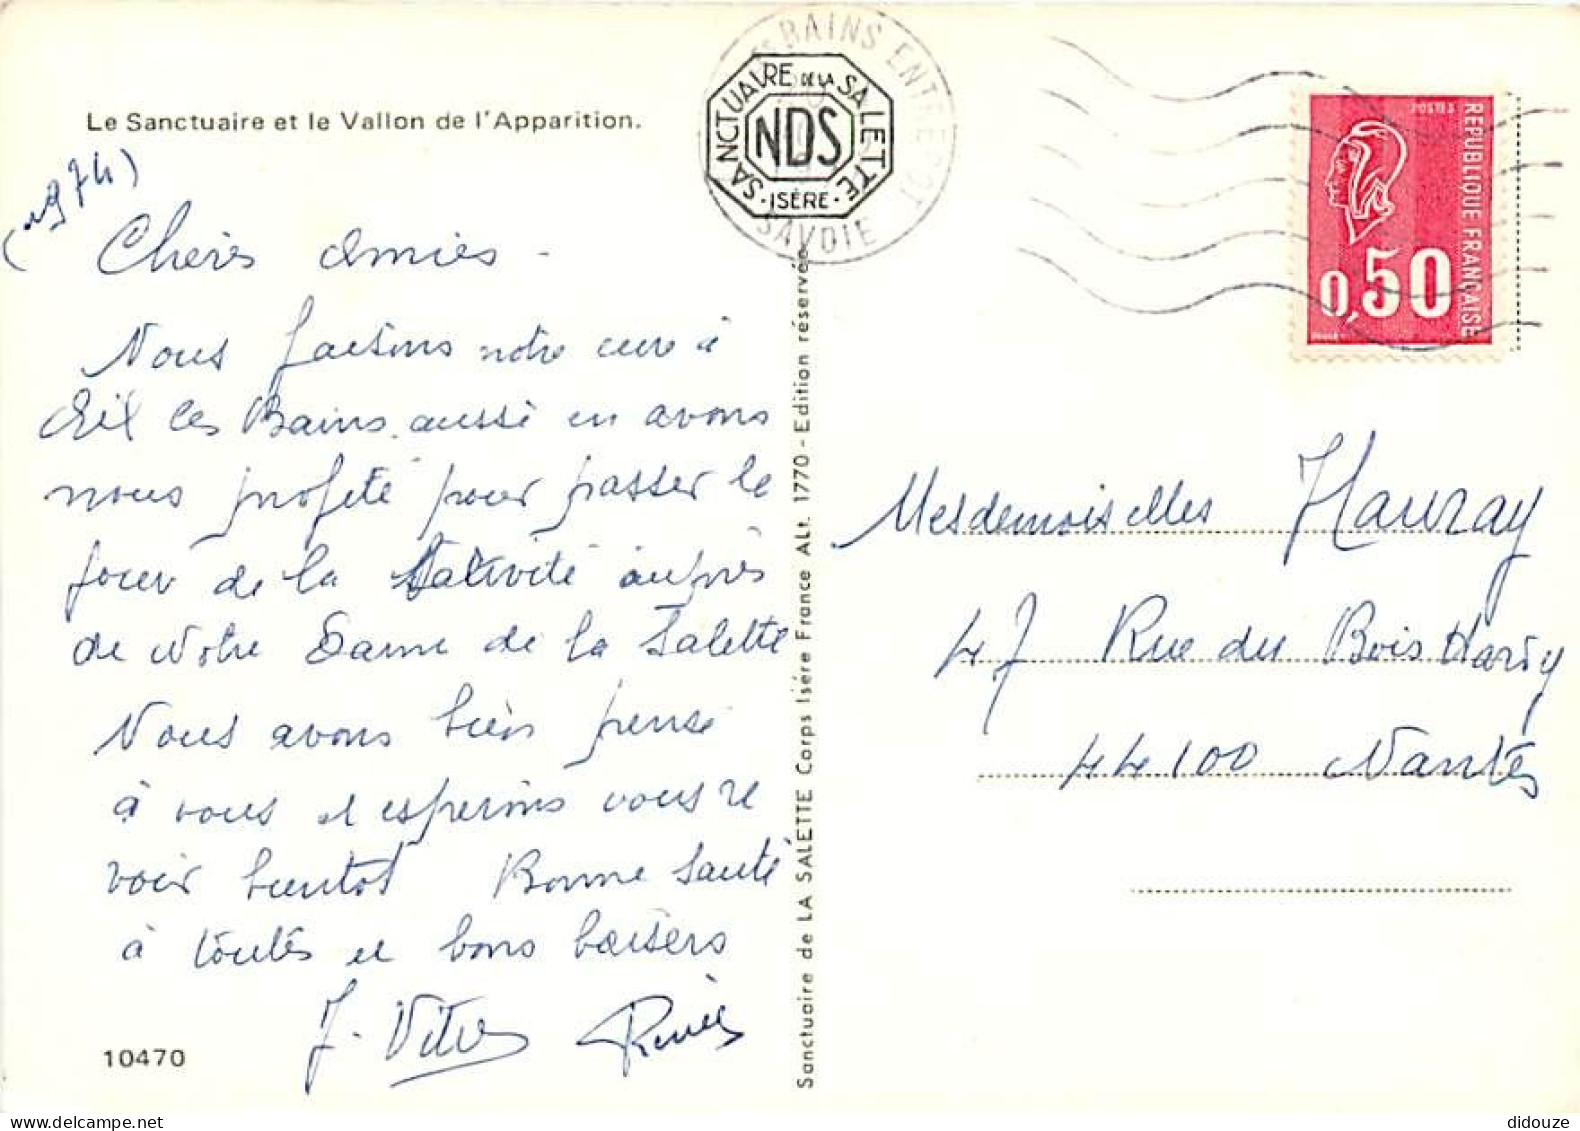 Le Sanctuaire et le Vallon de l'Apparition.
(1974)
Chères Amies -
Nous faisons notre cure à
Aix les Bains. aussi en avons
nous profité pour passer le
jour de la Nativité auprès
de Notre Dame de la Salette
Nous avons bien pensé
à vous et espérons vous re
voir bientot Bonne Santé
à toutes et bons baisers
J. Vitre Renée
10470
Sanctuaire de LA SALETTE Corps Isére France Alt. 1770 - Edition réservée
SANCTUAIRE DE LA SALETTE
NDS
- ISÈRE -
BAINS ENTREPOT
SAVOIE
POSTES
REPUBLIQUE FRANÇAISE
0,50
Mesdemoiselles Hauray
47 Rue du Bois Hardy
44100 Nantes
didouze